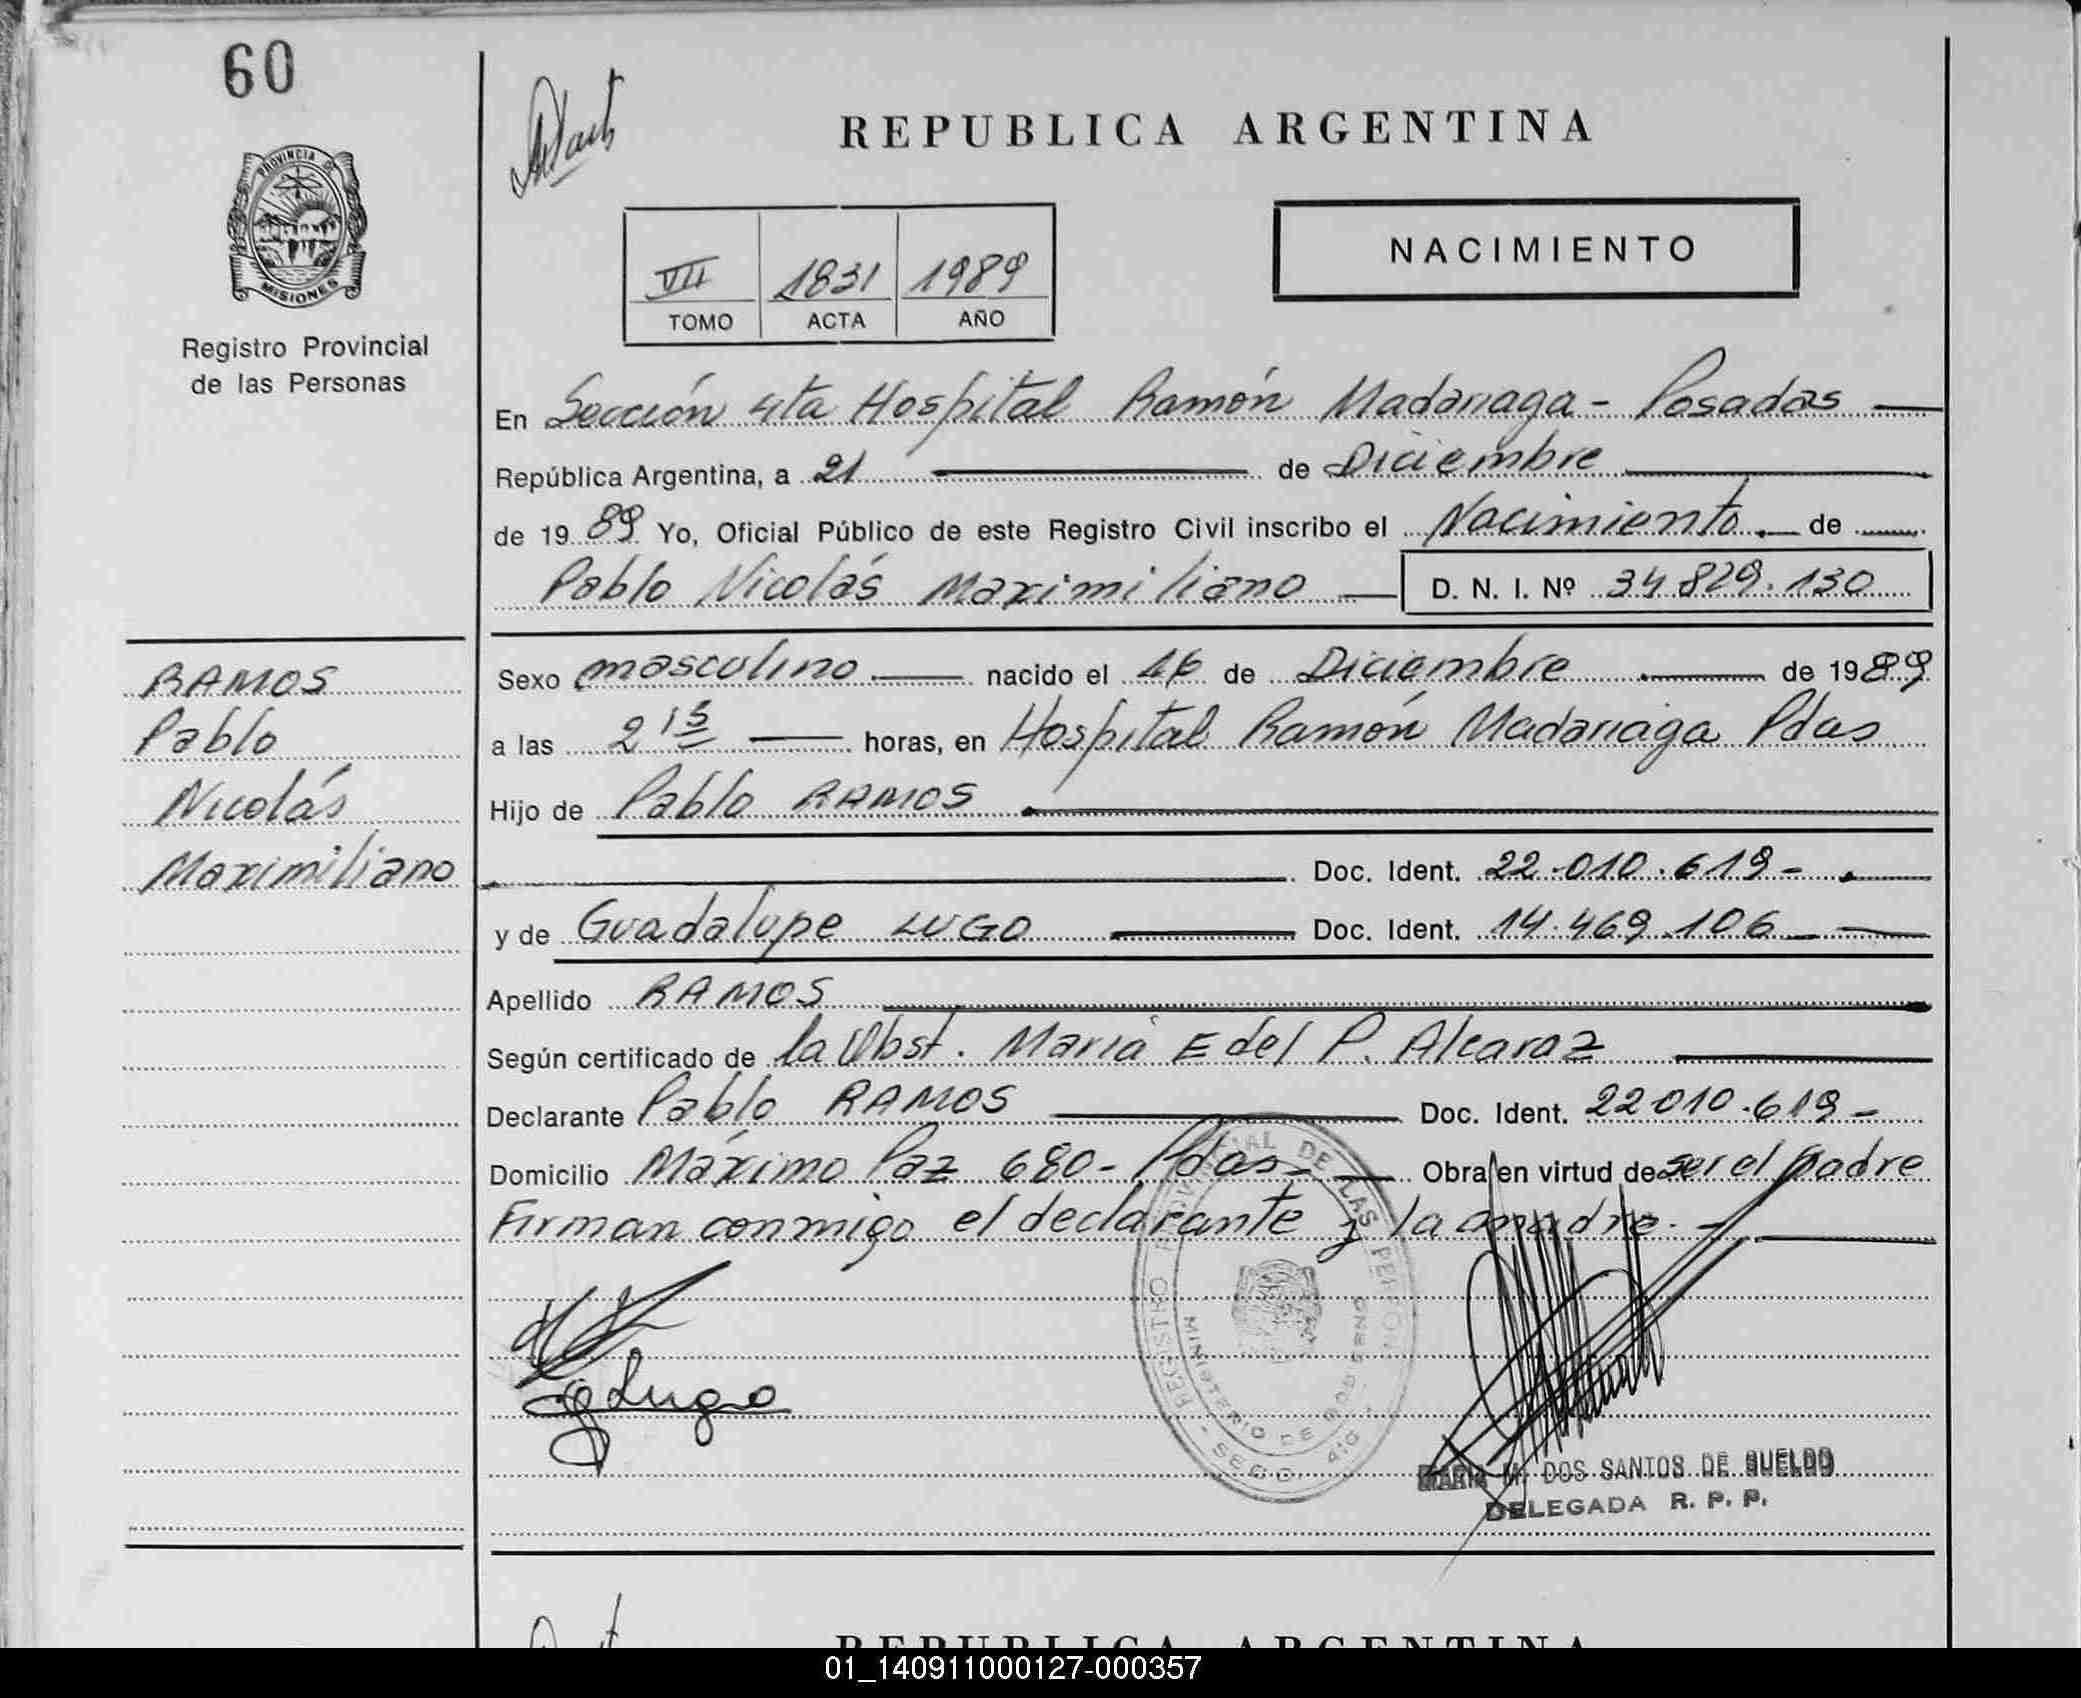 60
REPUBLICA ARGENTINA
PROVINCIA DE
MISIONES
Registro Provincial
de las Personas
NACIMIENTO
VII 1831 1989
TOMO ACTA AÑO
En Sección 4ta Hospital Ramón Madariaga - Posadas
República Argentina, a 21 de Diciembre
de 1989 Yo, Oficial Público de este Registro Civil inscribo el Nacimiento de
Pablo Nicolás Maximiliano D. N. I. Nº 34.829.130
RAMOS
Pablo
Nicolás
Maximiliano
Sexo masculino nacido el 16 de Diciembre de 1989
a las 2 15 horas, en Hospital Ramón Madariaga Pdas
Hijo de Pablo RAMOS
Doc. Ident. 22.010.619-
y de Guadalupe LUGO Doc. Ident. 14.469.106
Apellido RAMOS
Según certificado de la Obst. María E del P. Alcaraz
Declarante Pablo RAMOS Doc. Ident. 22010.619-
Domicilio Máximo Paz 680- Pdas- Obra en virtud de ser el padre
Firman conmigo el declarante y la madre.-
REGISTRO PROVINCIAL DE LAS PERSONAS
MINISTERIO DE GOBIERNO
Lugo
MARIA M. DOS SANTOS DE SUELDO
DELEGADA R. P. P.
REPUBLICA ARGENTINA
01_140911000127-000357